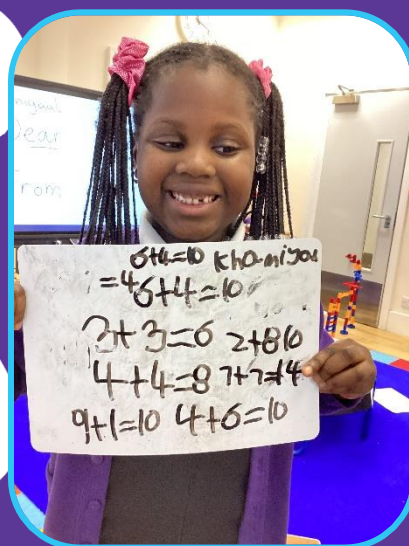 Dear
From
6+4=10 khamiyah
=4 6+4=10
3+3=6 2+810
4+4=8 7+7=14
9+1=10 4+6=10